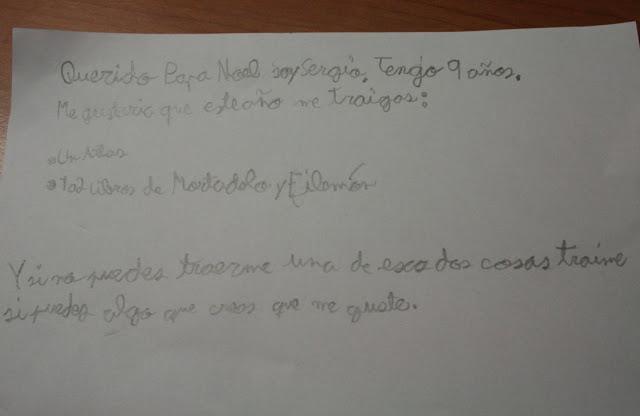 Querido Papa Noel soy Sergio. Tengo 9 años.
Me gustaria que este año me traigas:
•Un Atlas
•1 o 2 Libros de Mortadelo y Filemón
Y si no puedes traerme una de esas dos cosas traime
si puedes algo que creas que me guste.